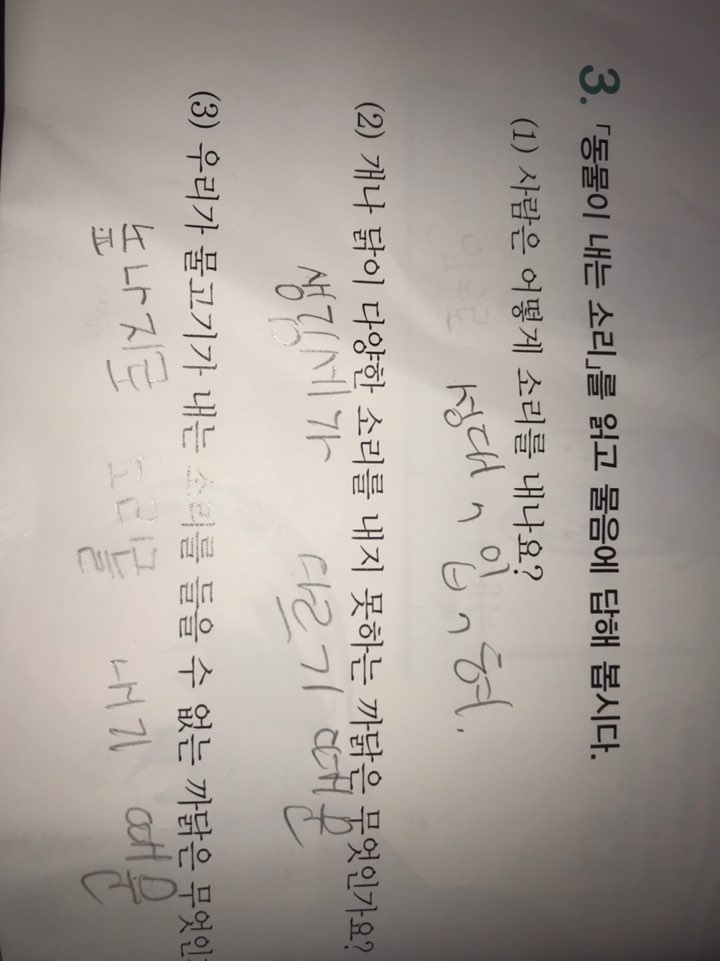 3. 「동물이 내는 소리」를 읽고 물음에 답해 봅시다.
(1) 사람은 어떻게 소리를 내나요?
입으로
성대, 입, 혀.
(2) 개나 닭이 다양한 소리를 내지 못하는 까닭은 무엇인가요?
생김세가 다르기 때문
(3) 우리가 물고기가 내는 소리를 들을 수 없는 까닭은 무엇인
높나지로 소리를 내기 때문